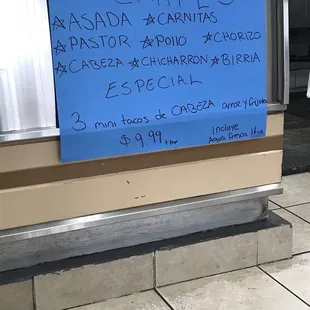 ☆ASADA ☆CARNITAS
☆PASTOR ☆POllO ☆CHORIZO
☆CABEZA ☆CHICHARRON ☆BIRRIA
ESPECIAL
3 mini tacos de CABEZA arroz y frijoles
$9.99 +tax
Incluye
Agua fresca